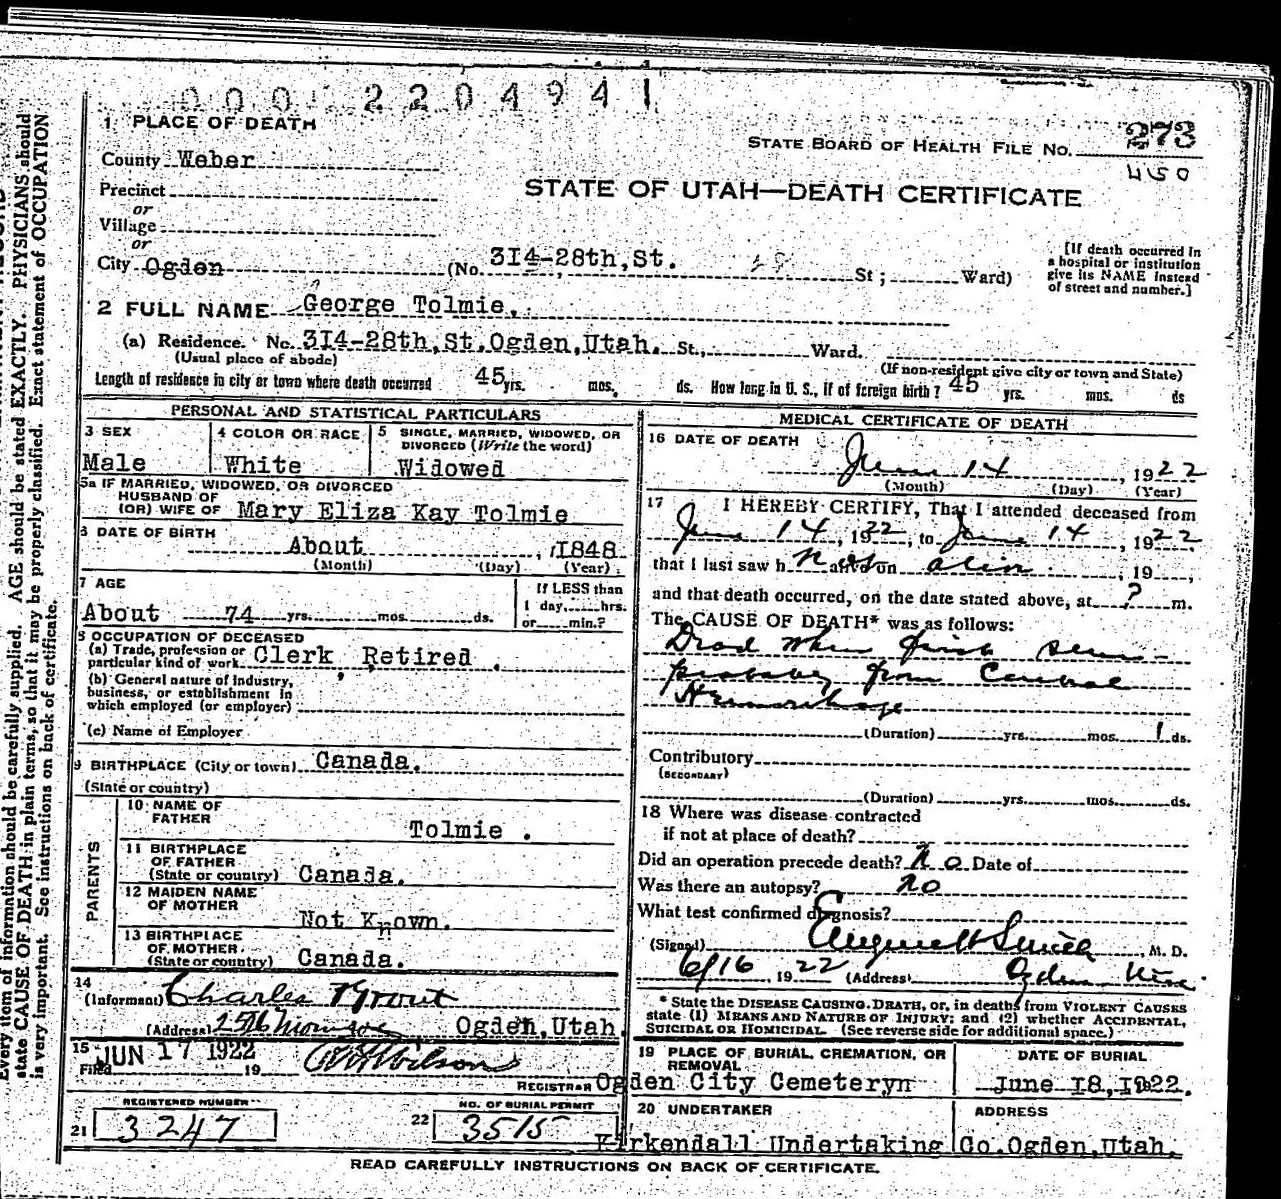 0 0 0 2 2 0 4 9 4 1
1 PLACE OF DEATH
STATE BOARD OF HEALTH FILE NO. 273
450
County Weber
Precinct
or
Village
or
STATE OF UTAH—DEATH CERTIFICATE
City Ogden (No. 3I4-28th,St. St ; Ward)
[If death occurred in
a hospital or institution
give its NAME instead
of street and number.]
2 FULL NAME George Tolmie.
(a) Residence. No. 3I4-28th,St.Ogden,Utah. St., Ward.
(Usual place of abode)
(If non-resident give city or town and State)
Length of residence in city or town where death occurred 45 yrs. mos. ds. How long in U. S., if of foreign birth? 45 yrs. mos. ds
PERSONAL AND STATISTICAL PARTICULARS
3 SEX
Male
4 COLOR OR RACE
White
5 SINGLE, MARRIED, WIDOWED, OR
DIVORCED (Write the word)
Widowed
5a IF MARRIED, WIDOWED, OR DIVORCED
HUSBAND OF
(OR) WIFE OF Mary Eliza Kay Tolmie
6 DATE OF BIRTH
About , 1848
(Month) (Day) (Year)
7 AGE
About 74 yrs. mos. ds.
If LESS than
1 day, hrs.
or min.?
8 OCCUPATION OF DECEASED
(a) Trade, profession or
particular kind of work Clerk Retired .
(b) General nature of industry,
business, or establishment in
which employed (or employer)
(c) Name of Employer
9 BIRTHPLACE (City or town) Canada.
(State or country)
PARENTS
10 NAME OF
FATHER
Tolmie .
11 BIRTHPLACE
OF FATHER
(State or country) Canada.
12 MAIDEN NAME
OF MOTHER
Not Known.
13 BIRTHPLACE
OF MOTHER
(State or country) Canada.
14
(Informant) Charles Grout
(Address) Monroe Ogden,Utah.
15 JUN 17 1922
Filed 19
Wilson
REGISTRAR
REGISTERED NUMBER
21 3247
NO. OF BURIAL PERMIT
22 3515
MEDICAL CERTIFICATE OF DEATH
16 DATE OF DEATH
June 14 , 1922
(Month) (Day) (Year)
17 I HEREBY CERTIFY, That I attended deceased from
June 14 , 1922, to June 14 , 1922
that I last saw h Not alive on alive , 19 ,
and that death occurred, on the date stated above, at ? m.
The CAUSE OF DEATH* was as follows:
Dead when first seen
probably from Cerebral
Hemorrhage
(Duration) yrs. mos. 1 ds.
Contributory
(SECONDARY)
(Duration) yrs. mos. ds.
18 Where was disease contracted
if not at place of death?
Did an operation precede death? No Date of
Was there an autopsy? no
What test confirmed diagnosis?
(Signed) Eugene H Smith , M. D.
6/16 , 1922 (Address) Ogden Utah
* State the DISEASE CAUSING DEATH, or, in deaths from VIOLENT CAUSES
state (1) MEANS AND NATURE OF INJURY; and (2) whether ACCIDENTAL,
SUICIDAL OR HOMICIDAL. (See reverse side for additional space.)
19 PLACE OF BURIAL, CREMATION, OR
REMOVAL
Ogden City Cemeteryn
DATE OF BURIAL
June I8,I922.
20 UNDERTAKER
ADDRESS
Kirkendall Undertaking Co.Ogden,Utah.
READ CAREFULLY INSTRUCTIONS ON BACK OF CERTIFICATE.
Every item of information should be carefully supplied. AGE should be stated EXACTLY. PHYSICIANS should
state CAUSE OF DEATH in plain terms, so that it may be properly classified. Exact statement of OCCUPATION
is very important. See instructions on back of certificate.